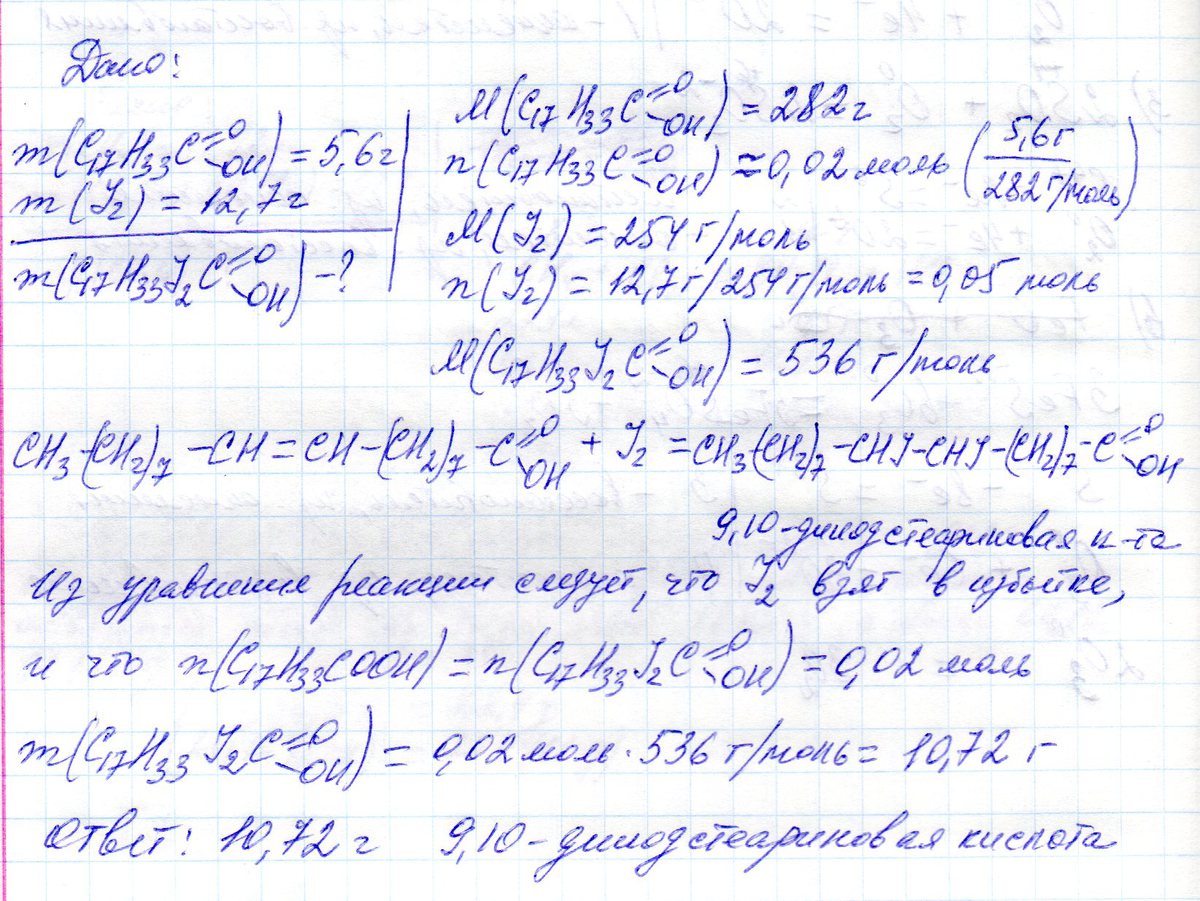 Дано:
m(C17H33C=O-OH) = 5,6г
m(J2) = 12,7г
m(C17H33J2C=O-OH) - ?
M(C17H33C=O-OH) = 282г
n(C17H33C=O-OH) ≈ 0,02 моль (5,6г / 282г/моль)
M(J2) = 254 г/моль
n(J2) = 12,7г/254г/моль = 0,05 моль
M(C17H33J2C=O-OH) = 536 г/моль
CH3-(CH2)7-CH=CH-(CH2)7-C=O-OH + J2 = CH3-(CH2)7-CHJ-CHJ-(CH2)7-C=O-OH
9,10-дииодстеариновая к-та
Из уравнения реакции следует, что J2 взят в избытке,
и что n(C17H33COOH) = n(C17H33J2C=O-OH) = 0,02 моль
m(C17H33J2C=O-OH) = 0,02 моль · 536 г/моль = 10,72 г
Ответ: 10,72 г 9,10-дииодстеариновая кислота